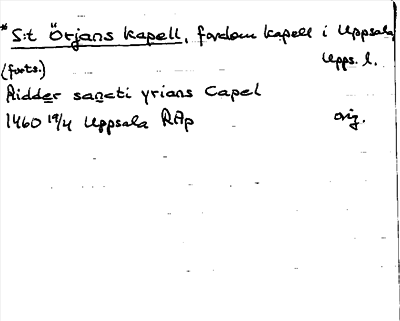 * S:t Örjans kapell, fordom kapell i Uppsala
(forts.) Upps. l.
Ridder sancti yrians Capel
1460 19/4 Uppsala RAp orig.